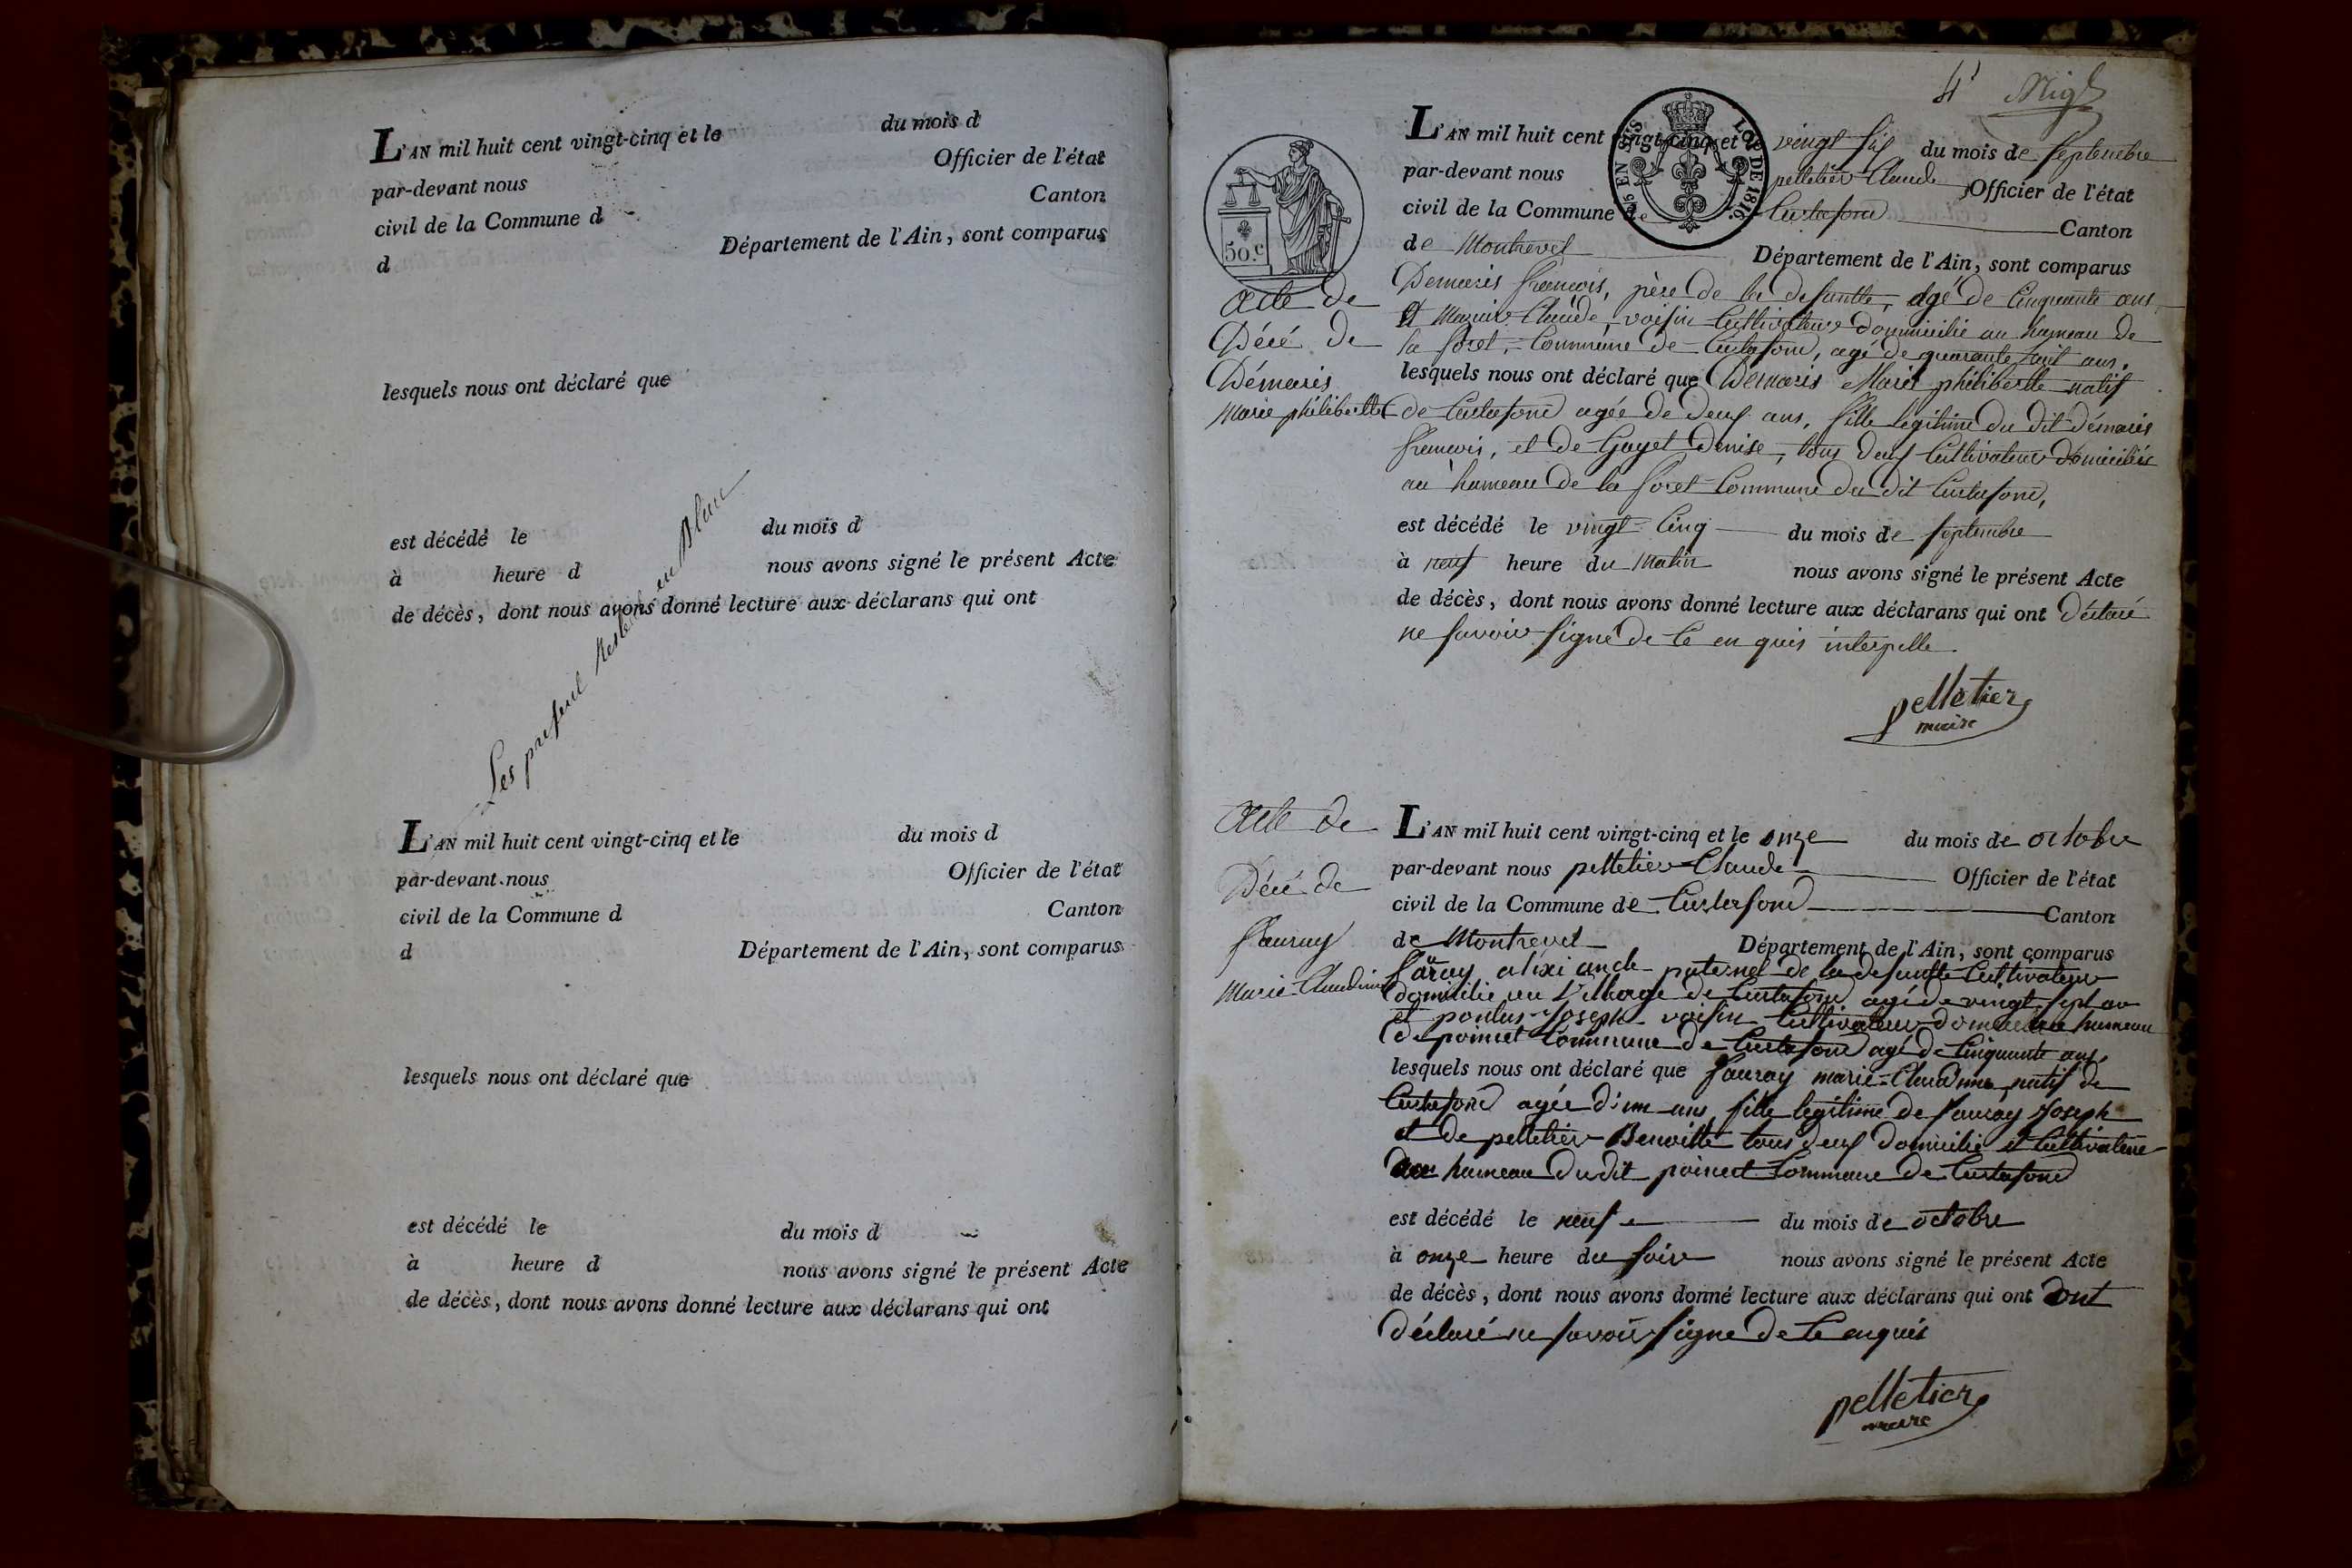 L'AN mil huit cent vingt-cinq et le du mois d
par-devant nous Officier de l'état
civil de la Commune d Canton
d Département de l'Ain, sont comparus
lesquels nous ont déclaré que
est décédé le du mois d
à heure d nous avons signé le présent Acte
de décès, dont nous avons donné lecture aux déclarans qui ont
Les en Blanc
L'AN mil huit cent vingt-cinq et le du mois d
par-devant nous Officier de l'état
civil de la Commune d Canton
d Département de l'Ain, sont comparus
lesquels nous ont déclaré que
est décédé le du mois d
à heure d nous avons signé le présent Acte
de décès, dont nous avons donné lecture aux déclarans qui ont
4
50.c
EN SUS LOI DE 1816.
acte de
Décé de
Démaris
Marie philiberte
L'AN mil huit cent vingt-cinq et le vingt six du mois de septembre
par-devant nous pelletier Claude Officier de l'état
civil de la Commune de Curtafond Canton
de Montrevel Département de l'Ain, sont comparus
Demaris francois, père de la defuntte, agé de Cinquante ans
et Claude, voisin Cultivateur domicilié au hameau de
la foret, Commune de Curtafond, agé de quarante huit ans,
lesquels nous ont déclaré que Demaris Marie philiberte natif
de Curtafond agée de deux ans, fille legitime du dit démaris
francois, et de Gayet Denise, tous deux Cultivateur domiciliés
au hameau de la foret Commune du dit Curtafond,
est décédé le vingt Cinq du mois de septembre
à neuf heure du Matin nous avons signé le présent Acte
de décès, dont nous avons donné lecture aux déclarans qui ont déclaré
ne savoir signé de ce en quis interpelle.
pelletier
maire
acte de
Décé de
fauray
Marie Claudine
L'AN mil huit cent vingt-cinq et le onze du mois de octobre
par-devant nous pelletier Claude Officier de l'état
civil de la Commune de Curtafond Canton
de Montrevel Département de l'Ain, sont comparus
fauray alexi oncle paternel de la defuntte Cultivateur
domicilié au Village de Curtafond agé de vingt sept an
et Joseph voisin Cultivateur hameau
de poincet Commune de Curtafond agé de Cinquante ans,
lesquels nous ont déclaré que fauray marie Claudine natif de
Curtafond agée d'un ans fille legitime de fauray Joseph
et de pelletier Benoitte tous deux domicilié et Cultivateur
au hameau du dit poincet Commune de Curtafond
est décédé le neuf du mois de octobre
à onze heure du soir nous avons signé le présent Acte
de décès, dont nous avons donné lecture aux déclarans qui ont ont
déclaré ne savoir signe de ce enquis
pelletier
maire